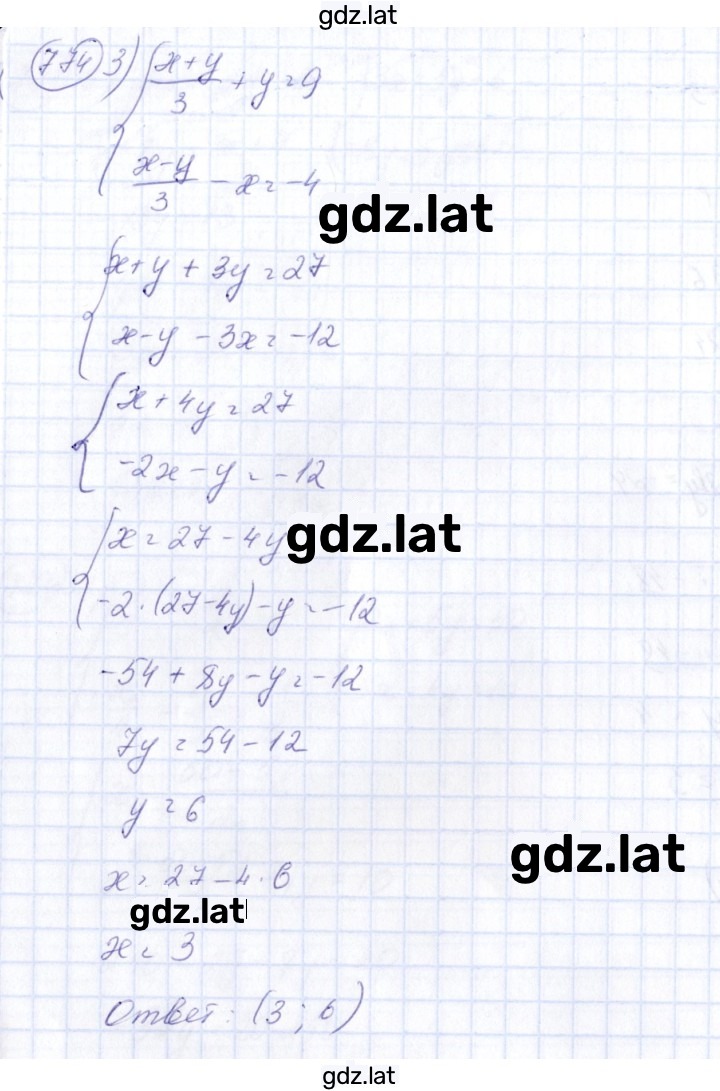 gdz.lat
774 3) { (x+y)/3 + y = 9
(x-y)/3 - x = -4
gdz.lat
{ x+y + 3y = 27
x-y - 3x = -12
{ x + 4y = 27
-2x - y = -12
{ x = 27 - 4y
gdz.lat
-2·(27-4y) - y = -12
-54 + 8y - y = -12
7y = 54 - 12
y = 6
gdz.lat
x = 27 - 4·6
gdz.lat
x = 3
Ответ: (3; 6)
gdz.lat